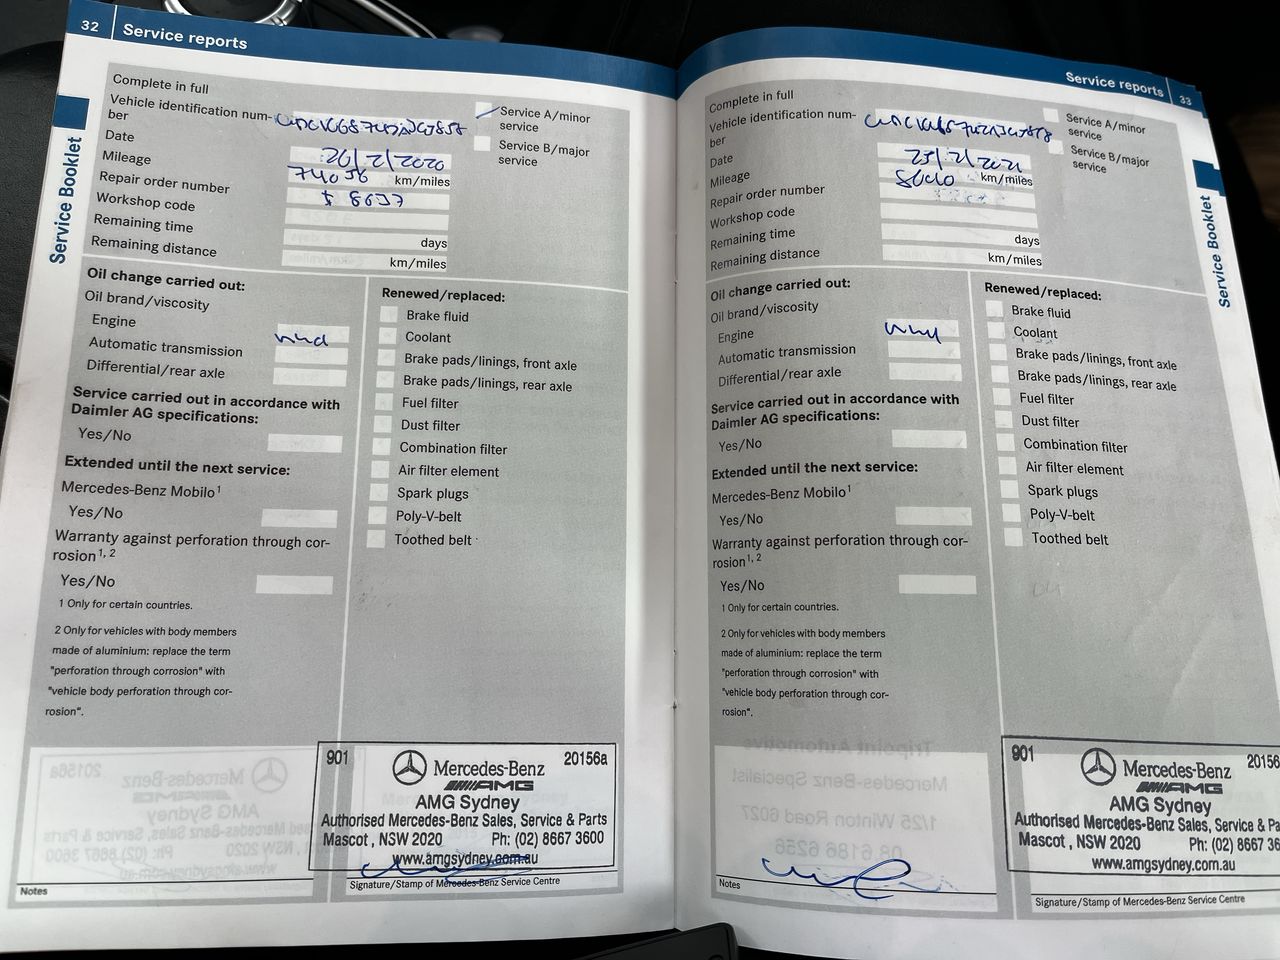 32 Service reports
Service Booklet
Complete in full
Vehicle identification num-
ber
Date 26/2/2020
Mileage 74036 km/miles
Repair order number
Workshop code
Remaining time days
Remaining distance km/miles
Service A/minor
service
Service B/major
service
Oil change carried out:
Oil brand/viscosity
Engine
Automatic transmission
Differential/rear axle
Service carried out in accordance with
Daimler AG specifications:
Yes/No
Extended until the next service:
Mercedes-Benz Mobilo1
Yes/No
Warranty against perforation through cor-
rosion1, 2
Yes/No
1 Only for certain countries.
2 Only for vehicles with body members
made of aluminium: replace the term
"perforation through corrosion" with
"vehicle body perforation through cor-
rosion".
Renewed/replaced:
Brake fluid
Coolant
Brake pads/linings, front axle
Brake pads/linings, rear axle
Fuel filter
Dust filter
Combination filter
Air filter element
Spark plugs
Poly-V-belt
Toothed belt
901 20156a
Mercedes-Benz
AMG
AMG Sydney
Authorised Mercedes-Benz Sales, Service & Parts
Mascot , NSW 2020 Ph: (02) 8667 3600
www.amgsydney.com.au
Notes
Signature/Stamp of Mercedes-Benz Service Centre
Service reports 33
Service Booklet
Complete in full
Vehicle identification num-
ber
Date
Mileage km/miles
Repair order number
Workshop code
Remaining time days
Remaining distance km/miles
Service A/minor
service
Service B/major
service
Oil change carried out:
Oil brand/viscosity
Engine
Automatic transmission
Differential/rear axle
Service carried out in accordance with
Daimler AG specifications:
Yes/No
Extended until the next service:
Mercedes-Benz Mobilo1
Yes/No
Warranty against perforation through cor-
rosion1, 2
Yes/No
1 Only for certain countries.
2 Only for vehicles with body members
made of aluminium: replace the term
"perforation through corrosion" with
"vehicle body perforation through cor-
rosion".
Renewed/replaced:
Brake fluid
Coolant
Brake pads/linings, front axle
Brake pads/linings, rear axle
Fuel filter
Dust filter
Combination filter
Air filter element
Spark plugs
Poly-V-belt
Toothed belt
Tripoint Automotive
Mercedes Benz Specialist
1/25 Winton Road 6027
08 6186 6256
901 20156
Mercedes-Benz
AMG
AMG Sydney
Authorised Mercedes-Benz Sales, Service & Pa
Mascot , NSW 2020 Ph: (02) 8667 36
www.amgsydney.com.au
Notes
Signature/Stamp of Mercedes-Benz Service Centre